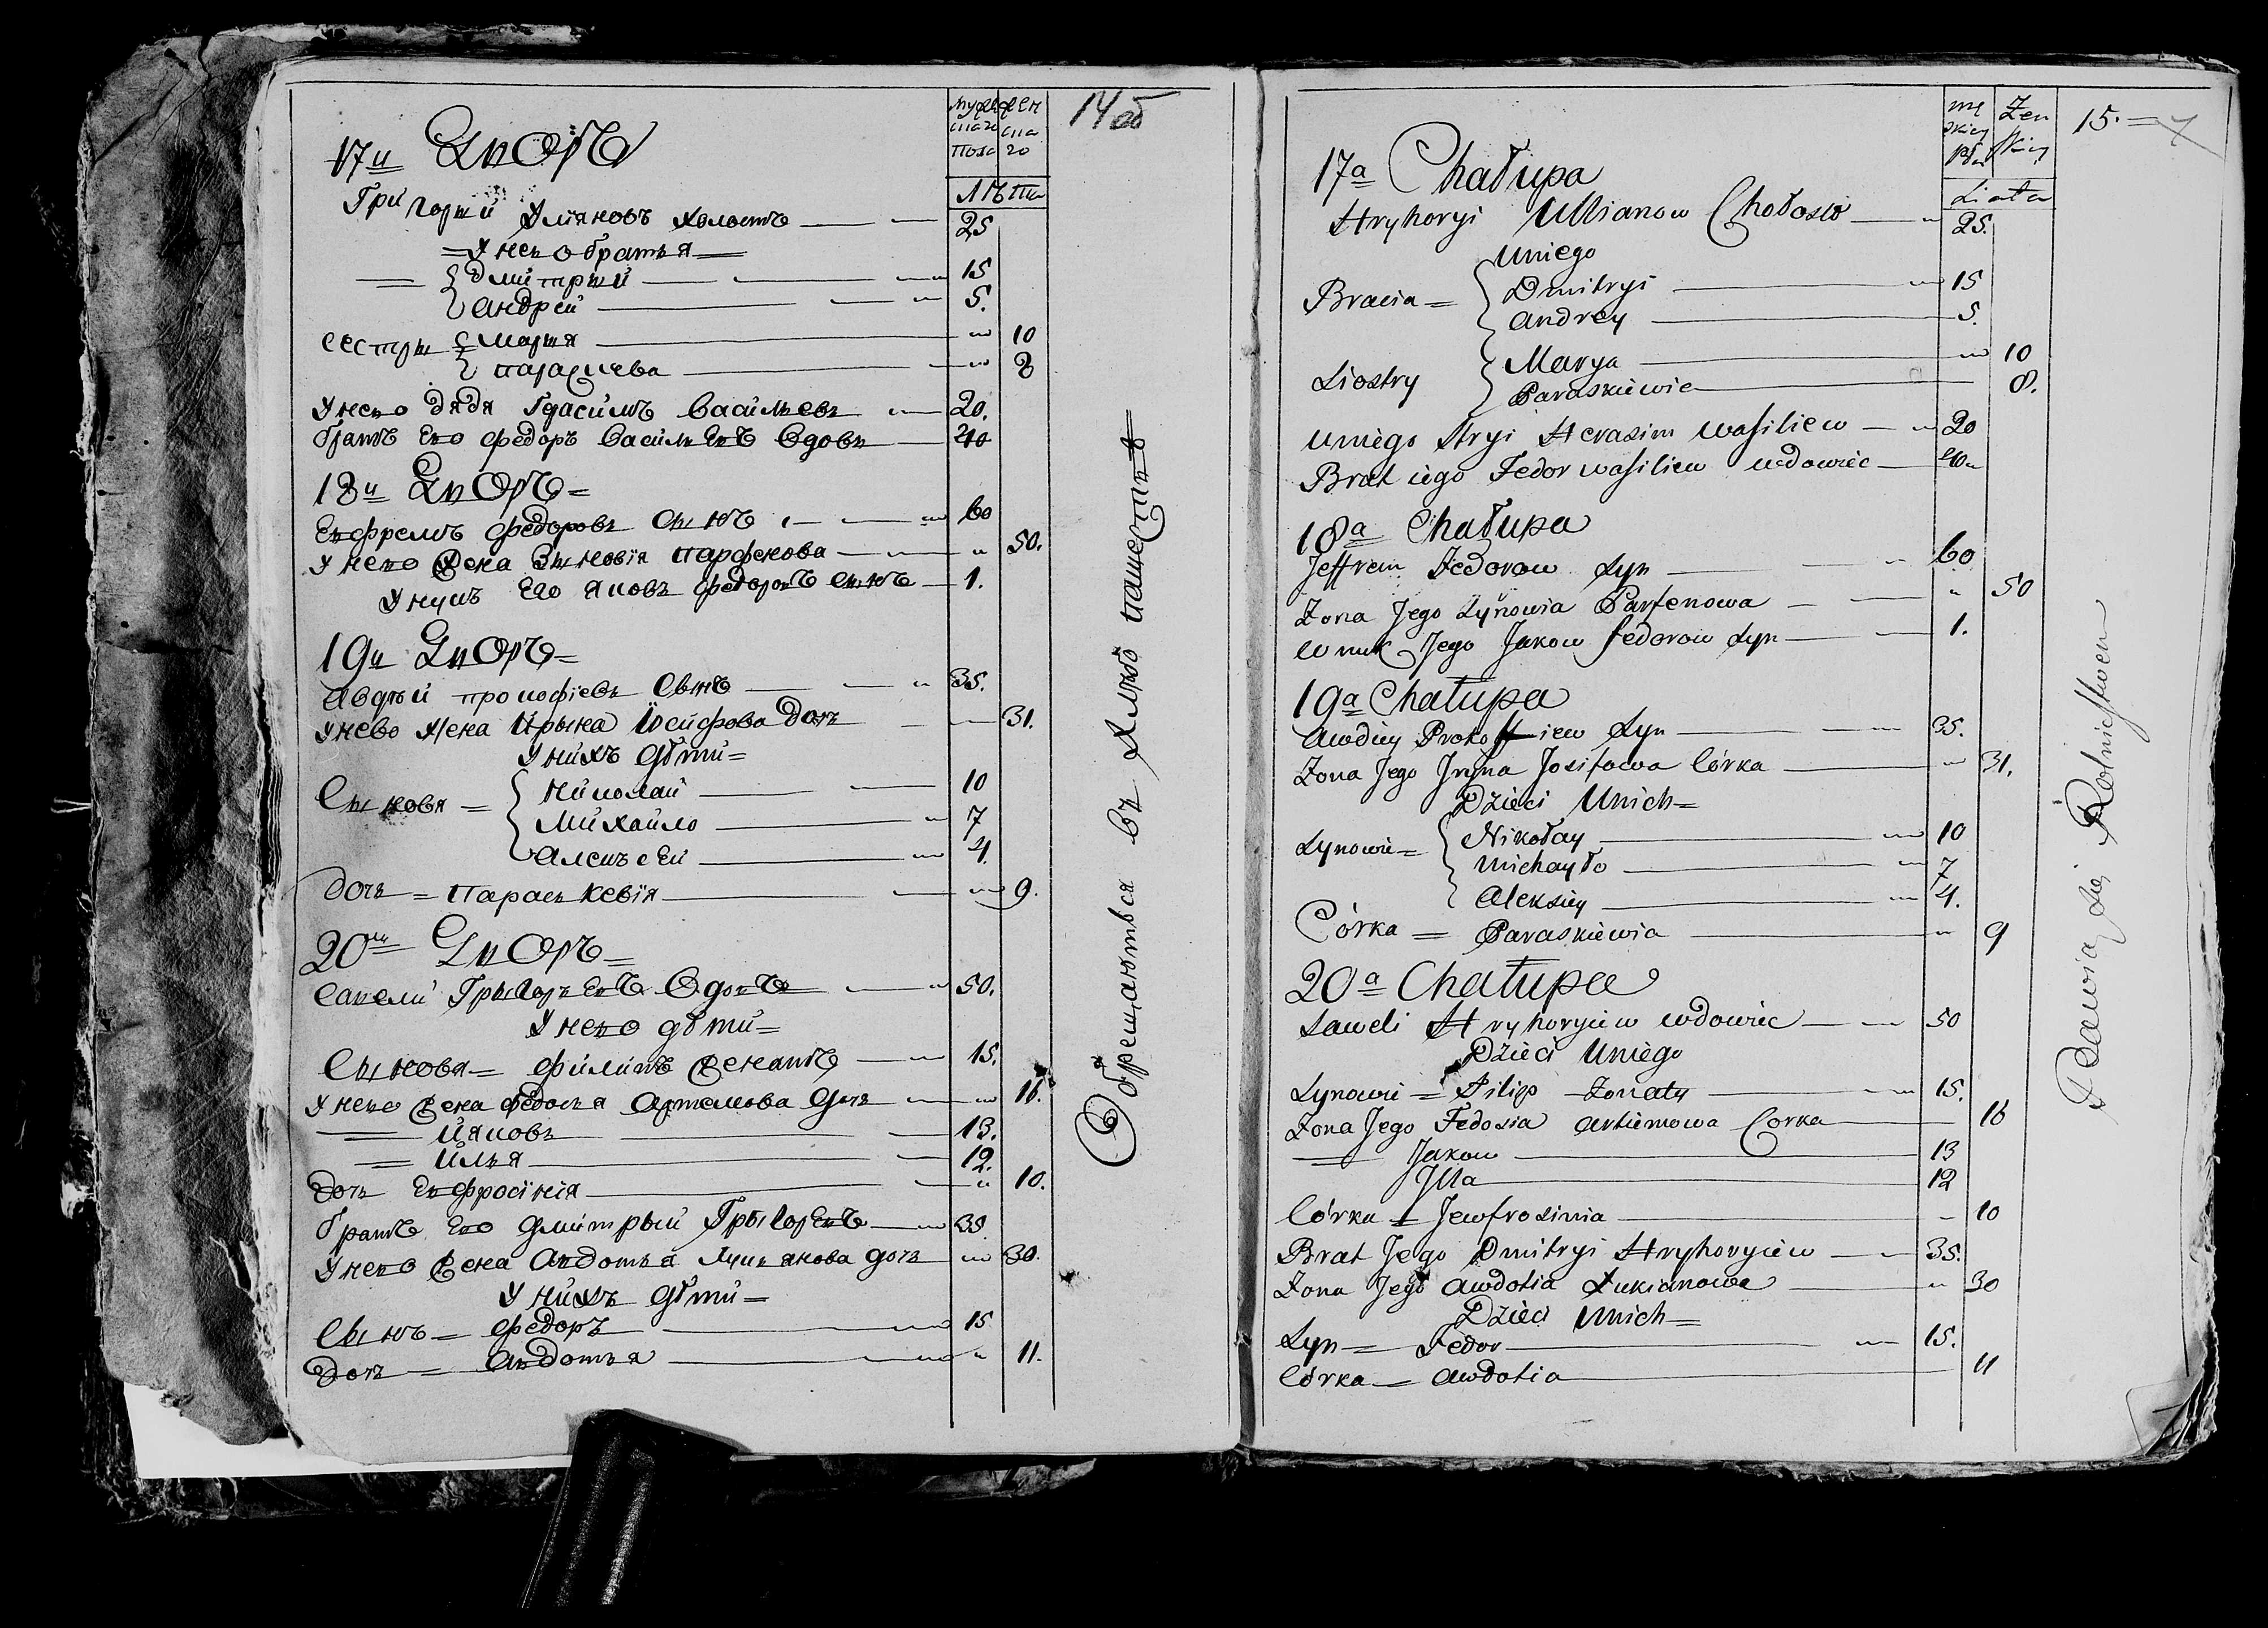 мужескаго пола
женскаго
14об
лѣта
17й Дворъ
Григорий Улiяновъ холостъ 25
У нево братья
Дмитрий 15
Андрей 5.
сестры Мария 10
Параскева 8
У нево дядя Герасимъ Васильевъ 20.
братъ Ево Федоръ Васильевъ вдовъ 40
18й Дворъ
Евфремъ Федоровъ сынъ 60
У нево жена Зыновiя Парфенова 50.
Унукъ Его Яковъ Федоровъ сынъ 1.
19й Дворъ
Авдѣй Прокофiевъ сынъ 35.
У нево жена Ирына Иосифова дочь 31.
У нихъ дѣти
Сыновя Николай 10
Михайло 7
Алексей 4.
дочь Параскевiя 9.
20й Дворъ
Савели Грыгорьевъ вдовъ 50.
У нево дѣти
Сыновя Филипъ женатъ 15.
У нево жена Федосья Артемова дочь 16.
Ияковъ 13.
Илья 12.
дочь Евфросiнiя 10.
братъ Ево Дмитрый Грыгорьевъ 35
У нево жена Авдотья Лукьянова дочь 30.
У нихъ дѣти
Сынъ Федоръ 15
дочь Авдотья 11.
Обрещаються въ хлѣбопашествѣ
męskiey płci
Żeńskiey
15.
Liata
17a Chałupa
Hryhoryi Ullianow Chołosty 25.
Uniego
Bracia Dmitryi 15
Andrey 5.
Siostry Marya 10
Paraskiewia 8.
Uniego Stryi Herasim Wasiliew 20
Brat iego Fedor Wasiliew wdowiec 40
18a Chałupa
Jeffrem Fedorow Syn 60
Żona Jego Zynowia Parfenowa 50
Wnuk Jego Jakow Fedorow Syn 1.
19a Chałupa
Awdiey Prokoffiew Syn 35.
Żona Jego Jryna Josifowa Córka 31.
Dzieci Unich
Synowie Nikołay 10
Michayło 7
Aleksiey 4.
Córka Paraskiewia 9
20a Chałupa
Saweli Hryhoryiew wdowiec 50
Dzieci Uniego
Synowie Filip Żonaty 15.
Żona Jego Fedosia Artiemowa Corka 16
Jakow 13
Jlla 12
Córka Jewfrosinia 10
Brat Jego Dmitryi Hryhoryiew 35.
Żona Jego Awdotia Łukianowa 30
Dzieci Unich
Syn Fedor 15.
Córka Awdotia 11
Bawią Się Rolnictwem